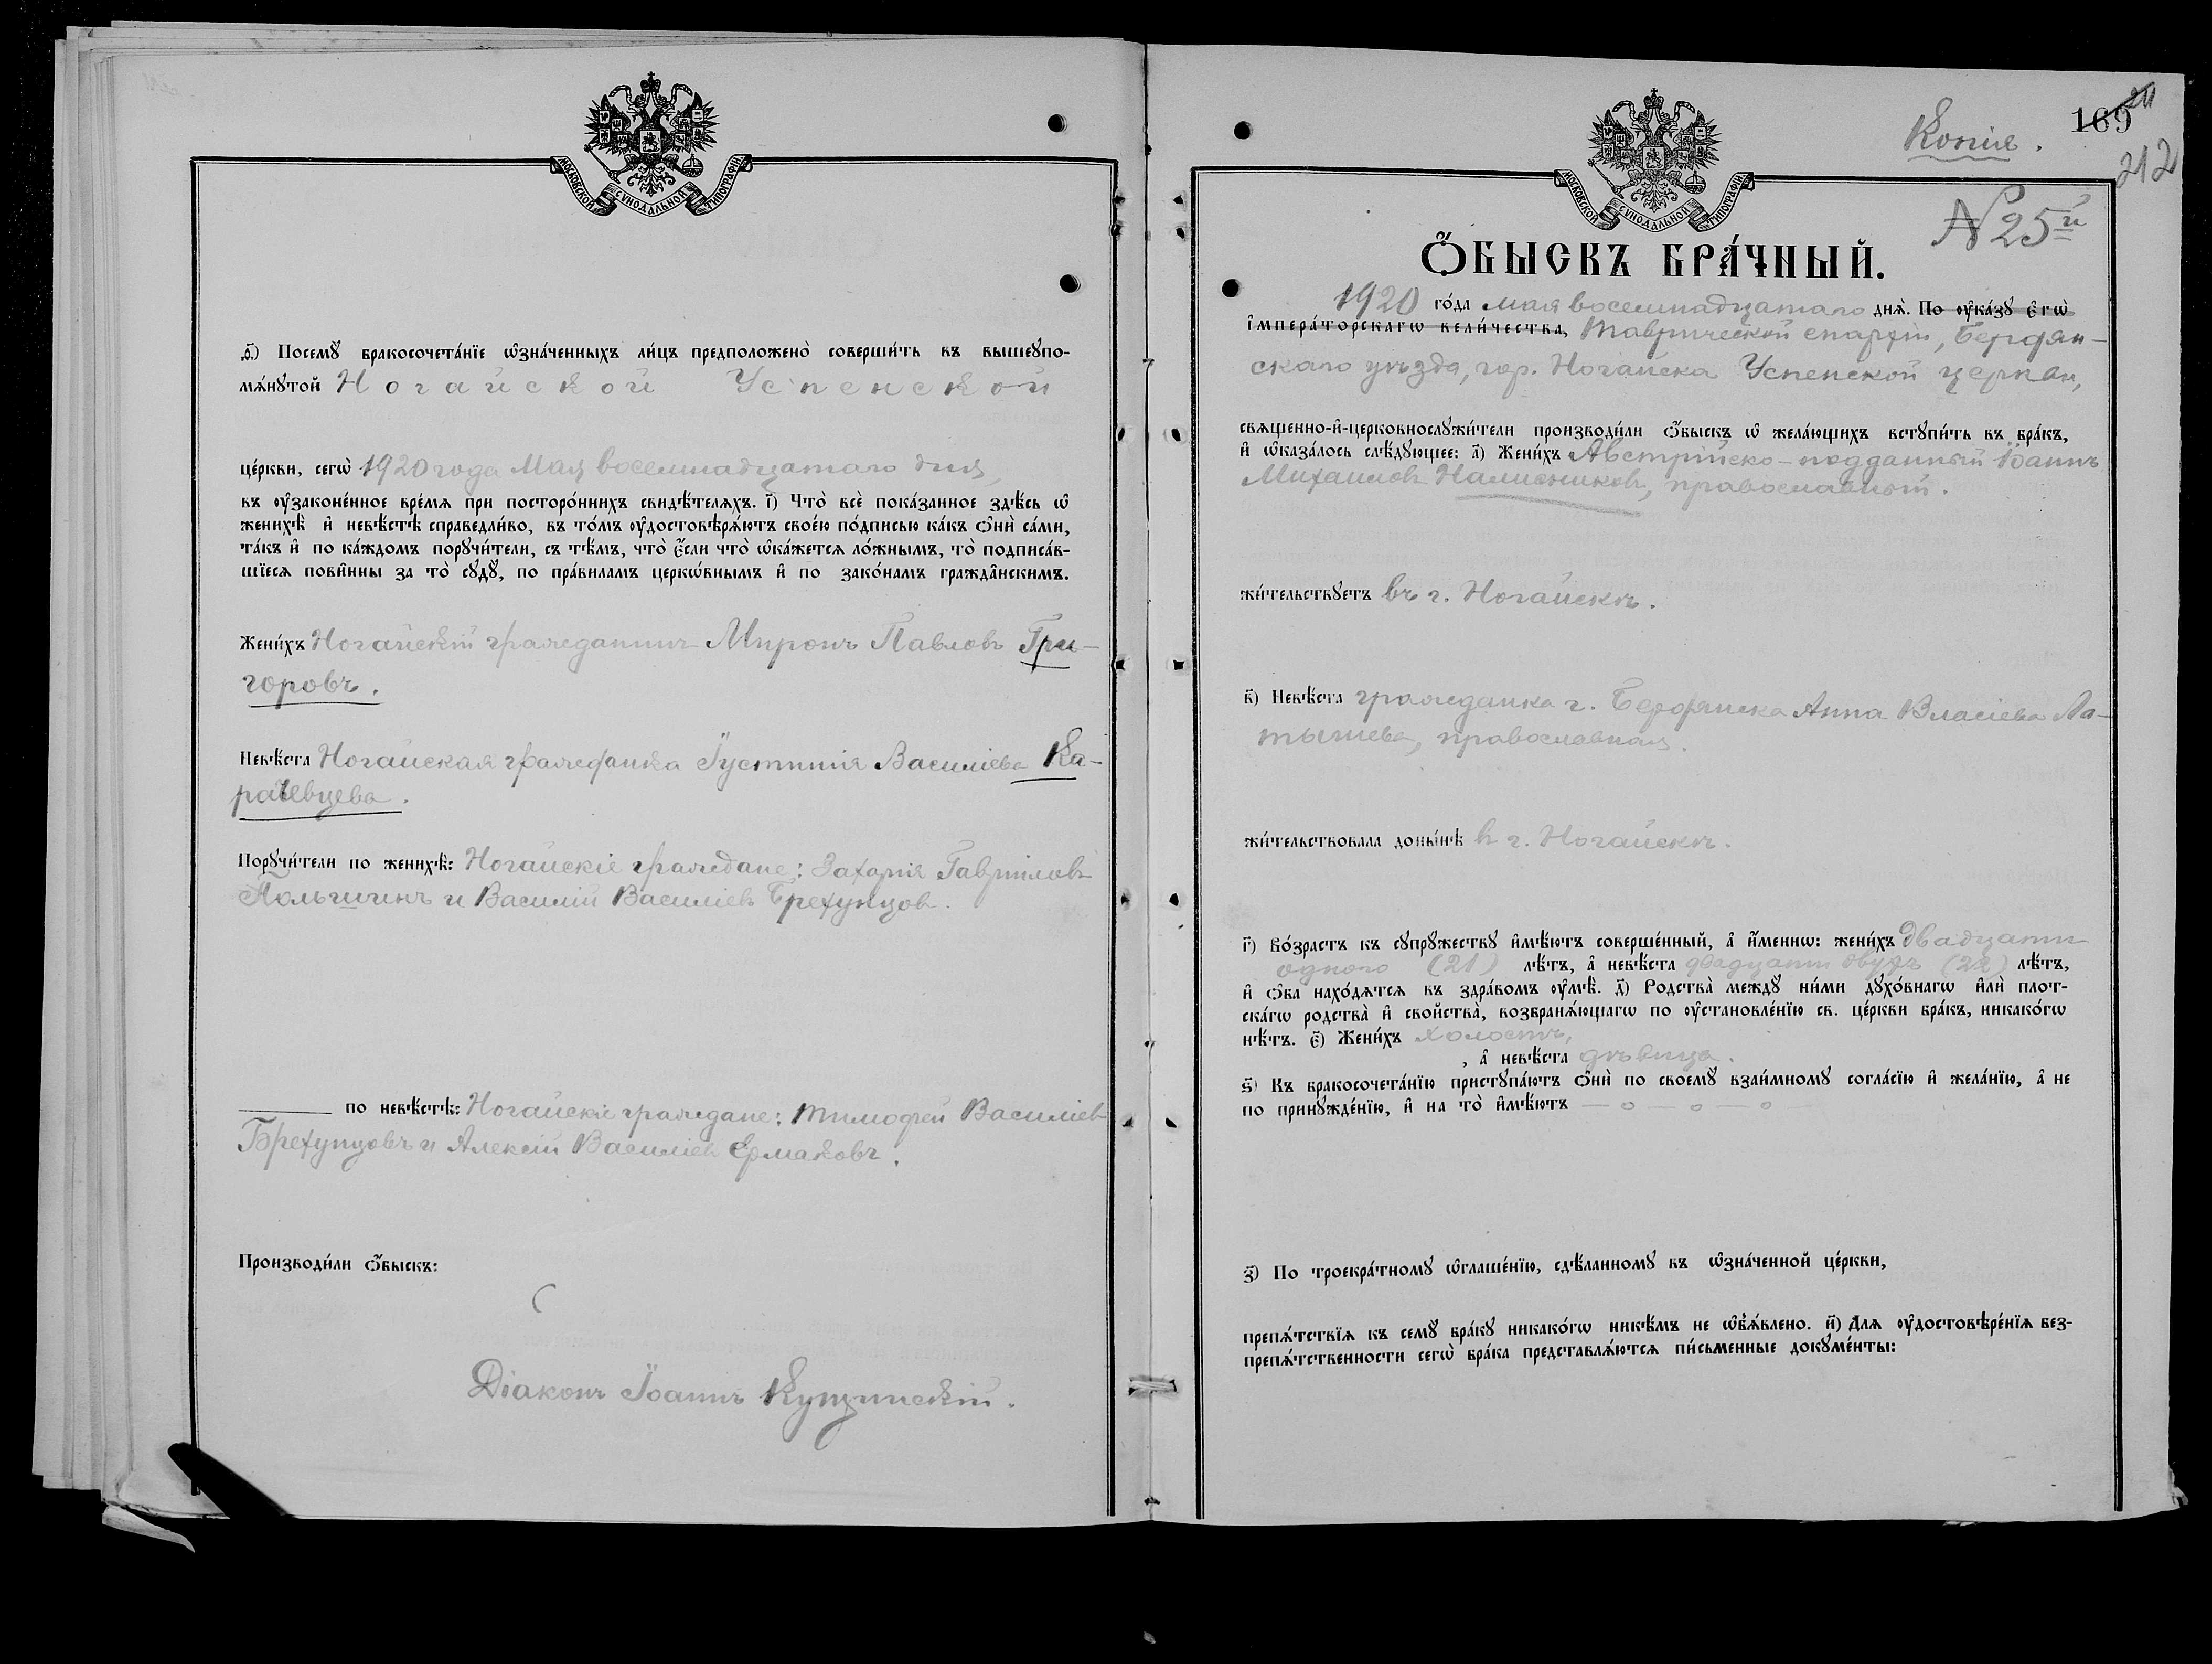 МОСКОВСКОЙ СѴНОДАЛЬНОЙ ТИПОГРАФІИ
ѳ҃) Посемꙋ бракосочета́нїе ѡ҆зна́ченныхъ ли́цъ предположено̀ соверши́ть въ вышеꙋпо-
мѧ́нꙋтой Ногайской Успенской
це́ркви, сегѡ̀ 1920 года Мая восемнадцатаго дня,
въ ᲂу҆законе́нное вре́мѧ при посторо́ннихъ свидѣ́телѧхъ. і҃) Что̀ всѐ пока́занное здѣ́сь ѡ҆
женихѣ̀ и҆ невѣ́стѣ справедли́во, въ то́мъ ᲂу҆достовѣрѧ́ютъ свое́ю по́дписью ка́къ ѻ҆нѝ са́ми,
та́къ и҆ по ка́ждомъ порꙋчи́тели, съ тѣ́мъ, что̀ є҆́сли что̀ ѡ҆ка́жетсѧ ло́жнымъ, то̀ подписа́в-
шїесѧ пови̂нны за то̀ сꙋдꙋ̀, по пра́виламъ церкѡ́внымъ и҆ по зако́намъ гражда̂нскимъ.
Жени́хъ Ногайскій гражданинъ Миронъ Павловъ Гри-
горовъ.
Невѣ́ста Ногайская гражданка Іустинія Василіева Ка-
рачевцева.
Порꙋчи́тели по женихѣ̀: Ногайскіе граждане: Захарія Гавріиловъ
и Василій Василіевъ Брехунцов.
по невѣ́стѣ: Ногайскіе граждане: Тимофей Василіев
Брехунцовъ и Алексій Василіев Ермаковъ.
Производи́ли ѻ҆́быскъ:
Діаконъ Іоаннъ Кущинскій.
Копія.
169
211
212
МОСКОВСКОЙ СѴНОДАЛЬНОЙ ТИПОГРАФІИ
N 25й
Ѻ҆́БЫСКЪ БРА́ЧНЫЙ.
1920 го́да мая восемнадцатаго днѧ̀. По ᲂу҆ка́зꙋ є҆гѡ̀
і҆мпера́торскагѡ вели́чества, Таврической епархіи, Бердян-
скаго уѣзда, гор. Ногайска Успенской церкви,
свѧще́нно-и҆-церковнослꙋжи́тели производи́ли ѻ҆́быскъ ѡ҆ жела́ющихъ встꙋпи́ть въ бра́къ,
и҆ ѡ҆каза́лось слѣ́дꙋющее: а҃) Жени́хъ Австрійско-подданный Іоаннъ
Михаиловъ православный.
жи́тельствꙋетъ въ г. Ногайскѣ.
в҃) Невѣ́ста гражданка г. Бердянска Анна Власіева Ла-
тышева, православная.
жи́тельствовала доны́нѣ в г. Ногайскѣ.
г҃) Во́зрастъ къ сꙋпрꙋ́жествꙋ и҆мѣ́ютъ соверше́нный, а҆ и҆́меннѡ: жени́хъ двадцати
одного (21) лѣ́тъ, а҆ невѣ́ста двадцати двухъ (22) лѣ́тъ,
и҆ ѻ҆́ба нахо́дѧтсѧ въ здра́вомъ ᲂу҆мѣ̀. д҃) Родства̀ междꙋ ни́ми дꙋхо́внагѡ и҆лѝ плот-
ска́гѡ родства̀ и҆ свойства̀, возбранѧ́ющагѡ по ᲂу҆становле́нїю св. це́ркви бра́къ, никако́гѡ
нѣ́тъ. є҃) Жени́хъ холостъ,
, а҆ невѣ́ста дѣвица.
ѕ҃) Къ бракосочета́нїю пристꙋпа́ютъ ѻ҆нѝ по своемꙋ̀ взаи́мномꙋ согла́сїю и҆ жела́нїю, а҆ не
по принꙋжде́нїю, и҆ на то̀ и҆мѣ́ютъ — о — о — о
з҃) По троекра́тномꙋ ѡ҆глаше́нїю, сдѣ́ланномꙋ въ ѡ҆зна́ченной це́ркви,
препѧ́тствїѧ къ семꙋ̀ бра́кꙋ никако́гѡ никѣ́мъ не ѡ҆б̾ѧ́влено. и҃) Длѧ ᲂу҆достовѣре́нїѧ без-
препѧ́тственности сегѡ̀ бра́ка представлѧ́ютсѧ пи́сьменные докꙋме́нты: